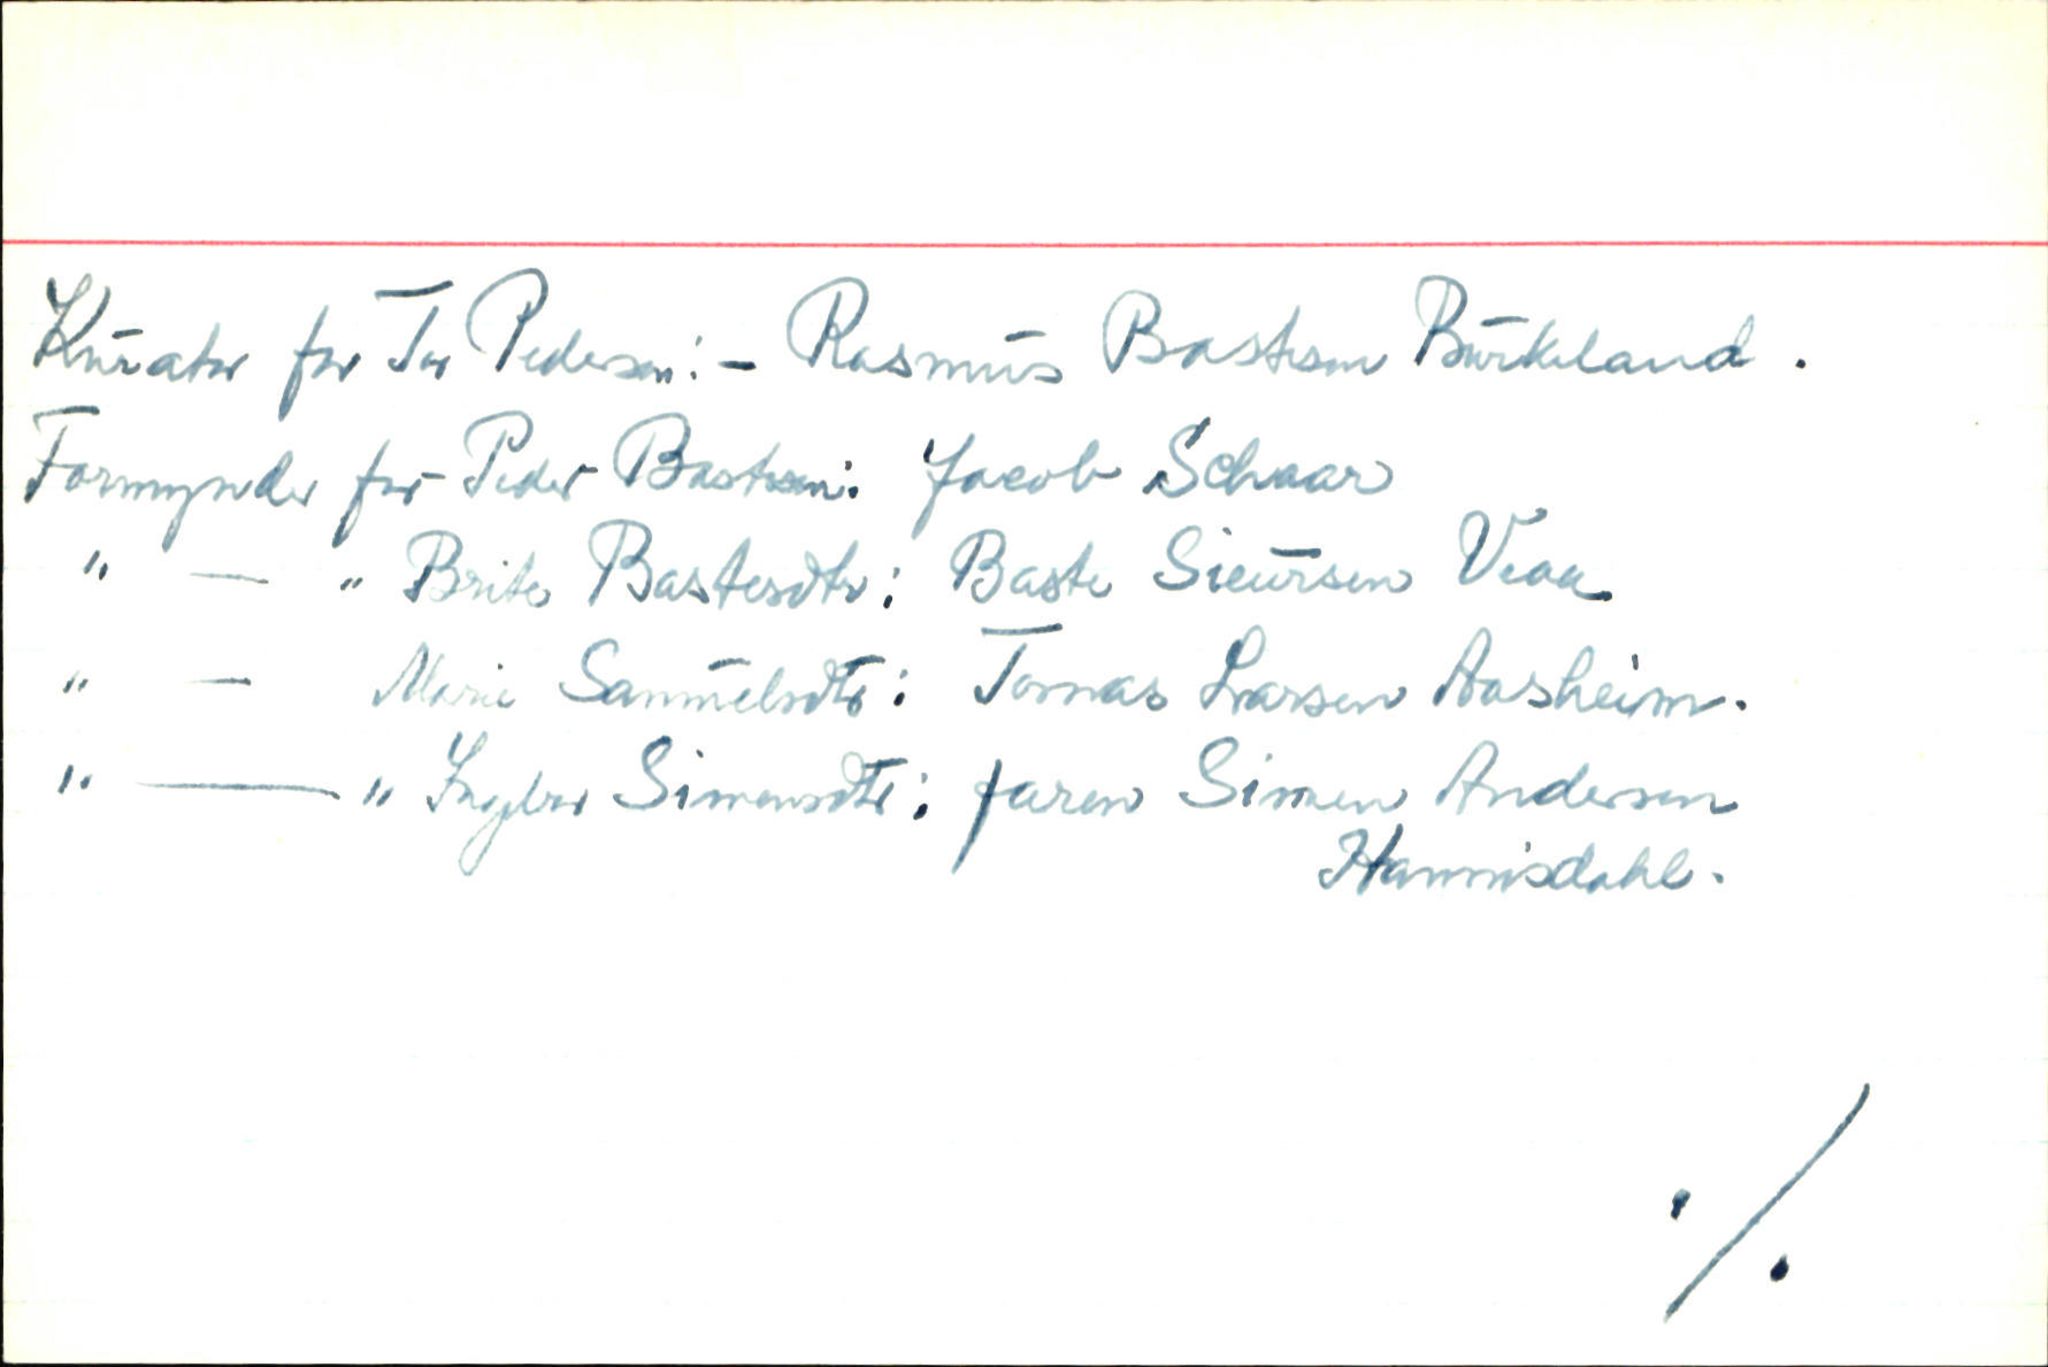 Kurator for Tor Pedersen: - Rasmus Bastesen Burkeland.
Formynder for Peder Bastesen: Jacob Schaar
" — " Brite Bastesdtr: Baste Sieursen Veaa
" — Marie Samuelsdtr: Tomas Larsen Aasheim.
" — " Ingebor Simensdtr: faren Simen Andersen
Hannisdahl.
./.